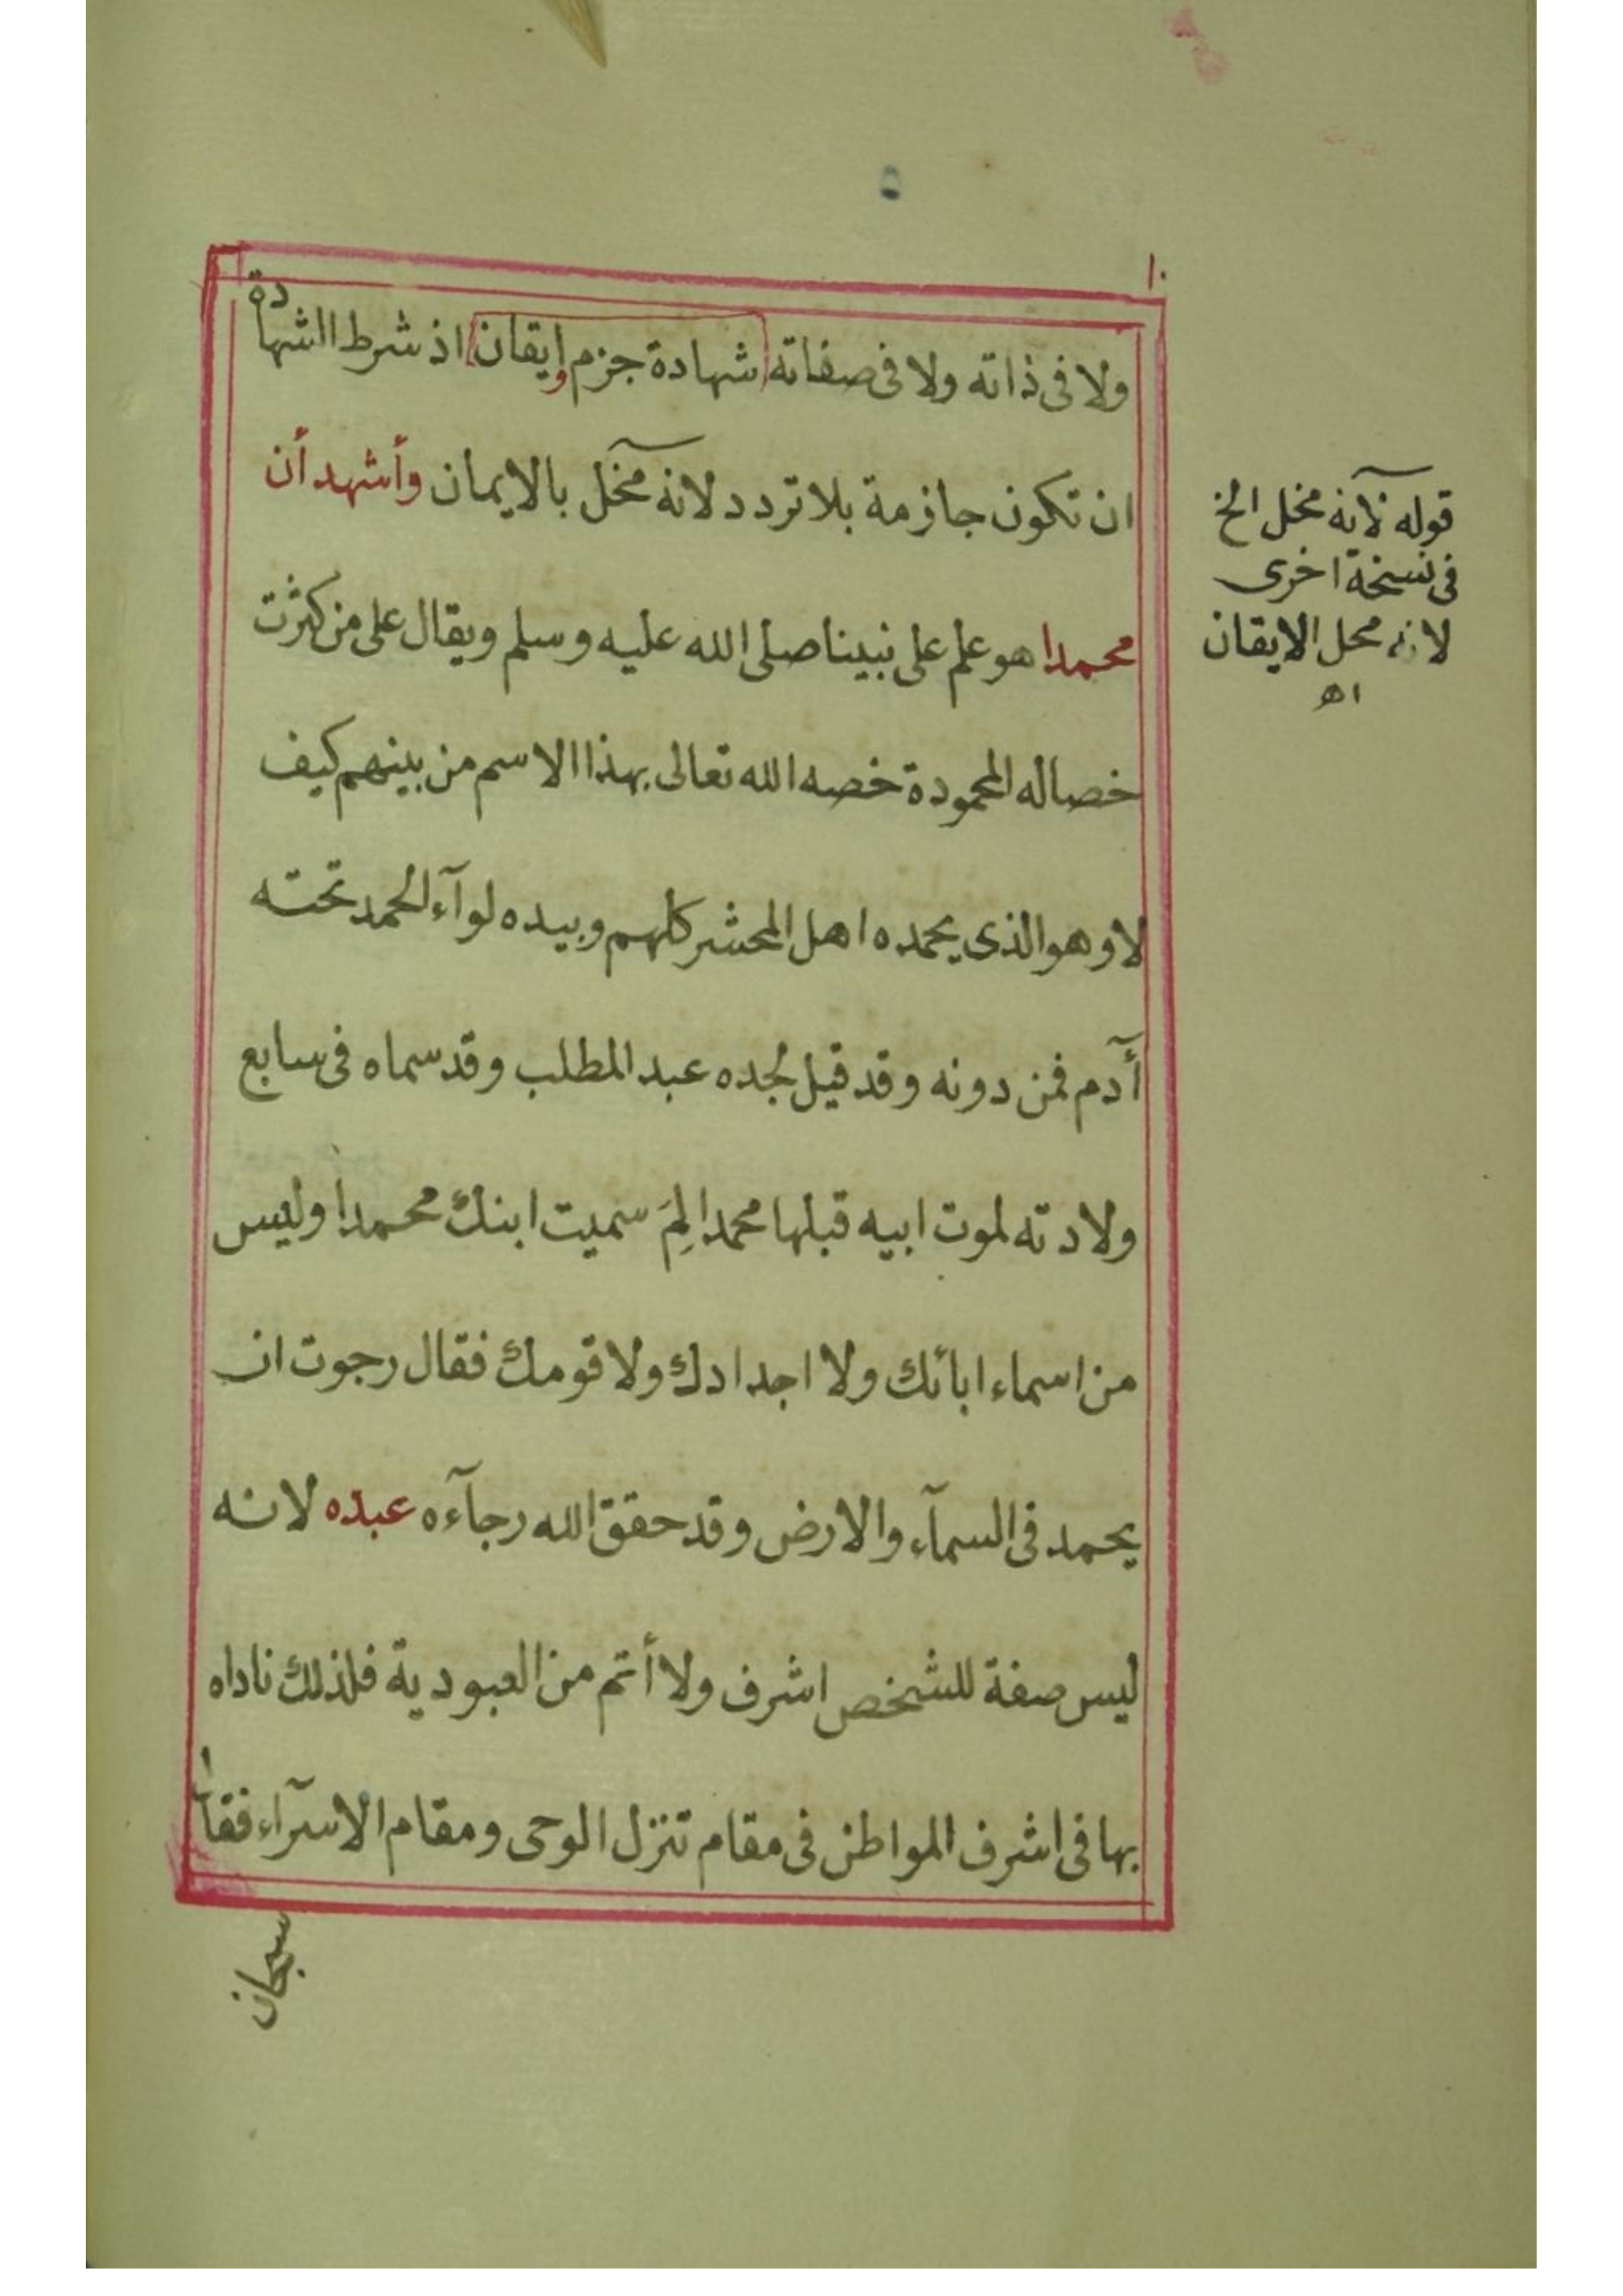 ٥
١٠
ولا فى ذاته ولا فى صفاته شهادة جزم وإيقان اذ شرط الشهادة
ان تكون جازمة بلا تردد لانه مخل بالايمان وأشهد أن
محمدا هو علم على نبينا صلى الله عليه وسلم ويقال على من كثرت
خصاله المحمودة خصه الله تعالى بهذا الاسم من بينهم كيف
لا وهو الذى يحمده اهل المحشر كلهم وبيده لوآء الحمد تحته
أدم فمن دونه وقد قيل لجده عبد المطلب وقد سماه فى سابع
ولادته لموت ابيه قبلها محمدا لِمَ سميت ابنك محمدا وليس
من اسماء ابائك ولا اجدادك ولا قومك فقال رجوت ان
يحمد فى السمآء والارض وقد حقق الله رجآءه عبده لانه
ليس صفة للشخص اشرف ولا أتم من العبودية فلذلك ناداه
بها فى اشرف المواطن فى مقام تنزل الوحى ومقام الاسرآء فقال
سبحان
قوله لآنه مخل الخ
فى نسخة اخرى
لانه محل الايقان
اهـ